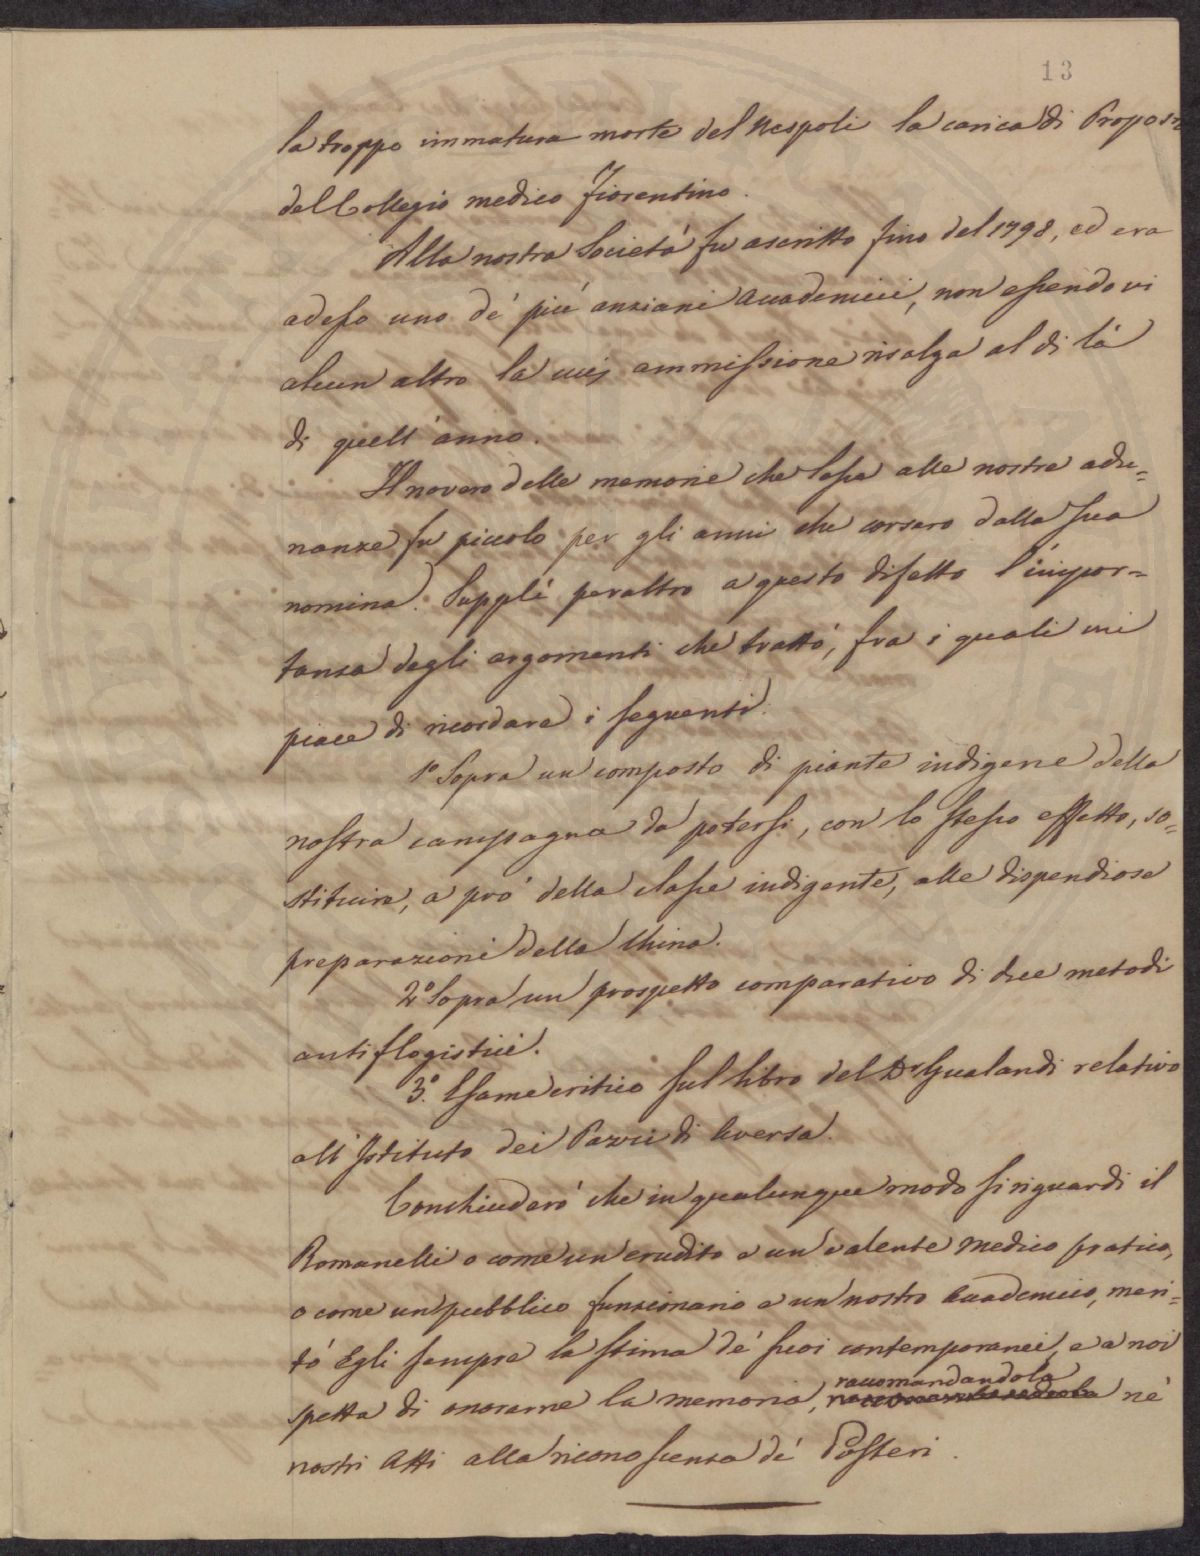 13
la troppo immatura morte del Nespoli la carica di Propos
del Collegio medico fiorentino.
Alla nostra Società fu ascritto fino del 1798, ed era
adesso uno de' più anziani Accademici, non essendovi
alcun altro la cui ammissione risalga al di là
di quell' anno.
Il novero delle memorie che lesse alle nostre adu=
nanze fu piccolo per gli anni che corsero dalla sua
nomina. Supplì peraltro a questo difetto l'impor=
tanza degli argomenti che trattò, fra i quali mi
piace di ricordare i seguenti:
1º Sopra un composto di piante indigene della
nostra campagna da potersi, con lo stesso effetto, so=
stituire, a prò della classe indigente, alle dispendiose
preparazioni della China.
2º Sopra un prospetto comparativo di due metodi
antiflogistici.
3º. Esame critico sul libro del Dr Gualandi relativo
all' Istituto dei Pazzi di Aversa.
Conchiuderò che in qualunque modo si riguardi il
Romanelli o come un erudito e un valente medico pratico,
o come un pubblico funzionario e un nostro Accademico, meri=
tò Egli sempre la stima de' suoi contemporanei, e a noi
raccomandandola
spetta di onorarne la memoria, ne'
nostri Atti alla riconoscenza de' Posteri.